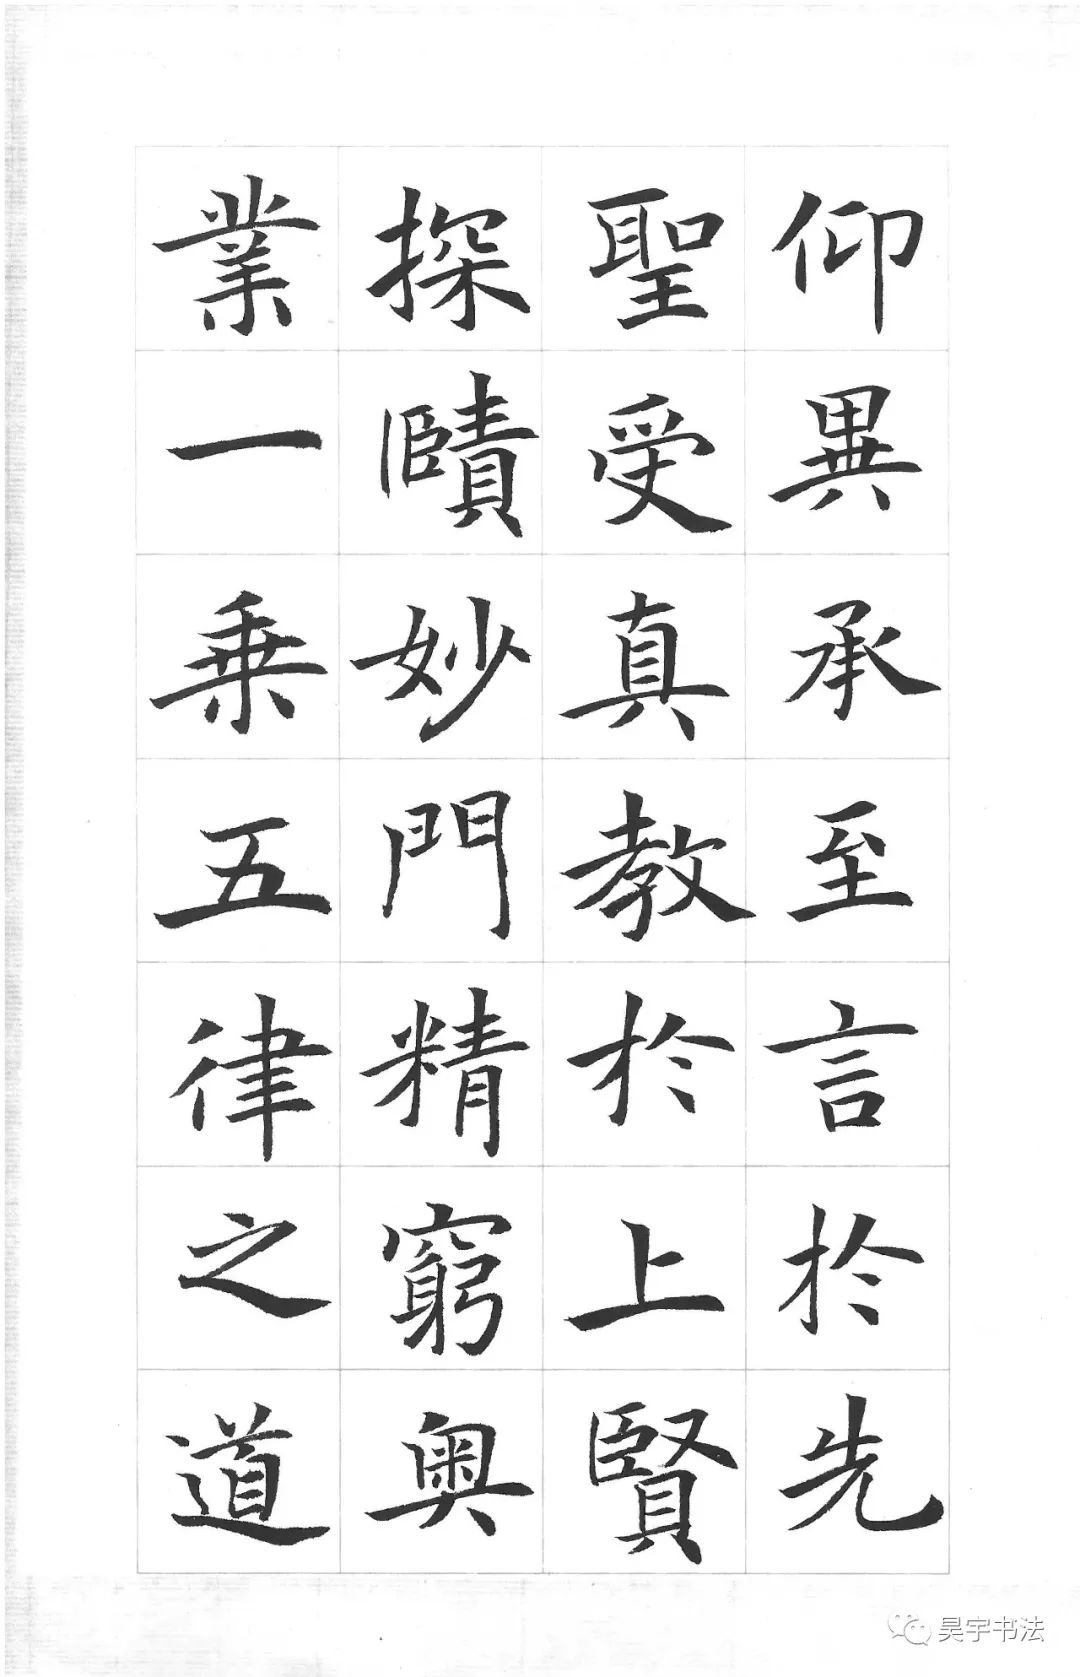 仰異承至言於先
聖受真教於上賢
探賾妙門精窮奧
業一乗五律之道
昊宇书法